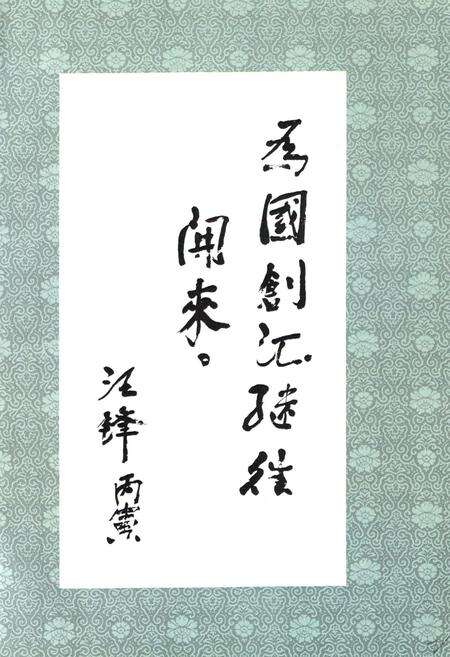 為國創汇継往
開來。
汪鋒 丙寅